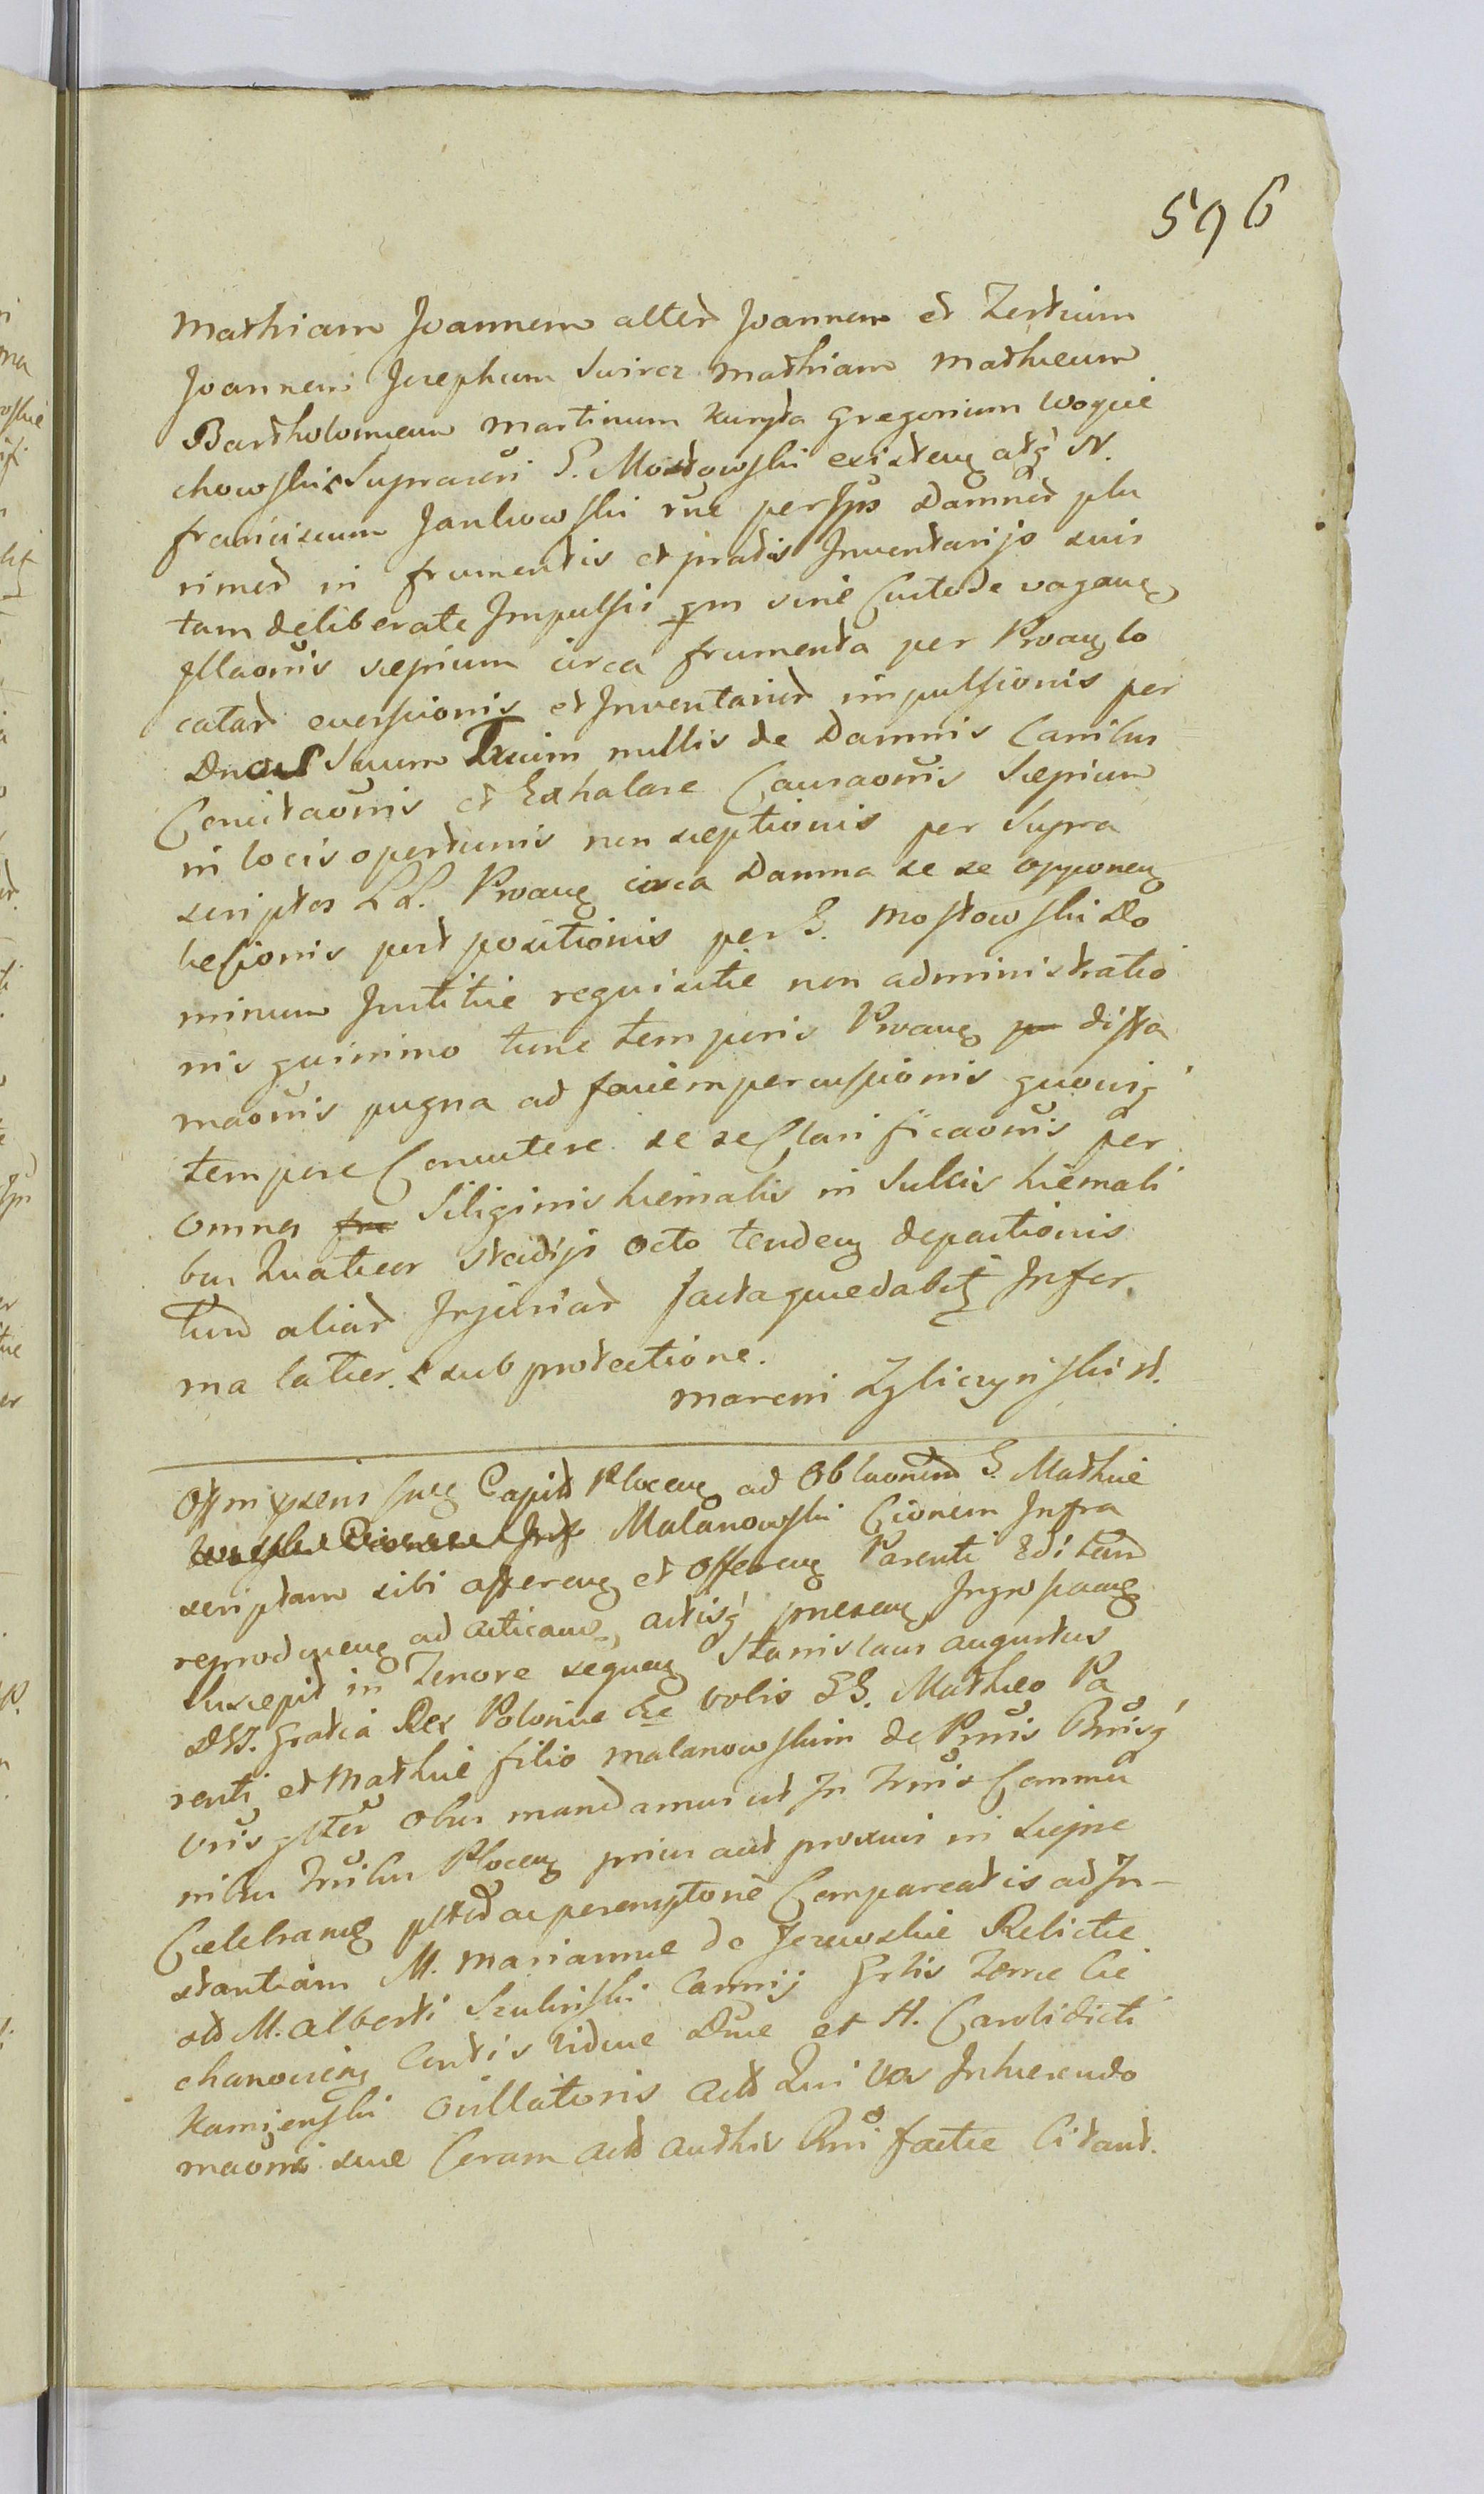 596
Mathiam Joannem alterd Joannem et Tertium
Joannem Josephum Swircz Mathiam Matheum
Bartholomeum Martinum Kurpta Gregorium Woycie
chowskie Suprascri G. Mostowski existeng atq N.
Franciscum Jankowski rne per Ipis Damnord plu
rimord in frumentis et pratis Inventarijs suis
tam deliberate Impulsis qm sine Custode vagang
Illaonis sepium circa frumenta per Proang lo
catard eversionis et Inventariord impulsionis per
Suum nullis de Damnis Canibus
Concitaonis et Exhalare Causaonis Sepium
in locis opertunis non septionis per Supra
scriptos LL. Proang circa Damna se se opponeng
lesionis post positionis per G. Mostowski Do
minum Justitie requisitie non administratio
nis quinimo tunc temporis Proang diffa
maonis pugna ad faciem percussionis quovisq
tempore Concutere se se Clarificaonis per
omnes Siliginis hiemalis in Sulcis hiemali
bus Quatuor Stadijs octo tendeng depactionis
Tum aliard Injuriard facta quedabitz Infor
ma latier. sub protectione.
Marcin Zgliczynski st.
Offm psens Sng Capit Ploceng ad Oblaonem G. Mathie
Malanowski Cionem Infra
scriptam sibi affereng et Offereng Parenti Editam
reproduceng ad acticand, actisq preseng Ingrossang
Suscepit in Tenore sequeng Stanislaus Augustus
DEI. Gratia Rex Polonie &c vobis GG. Matheo Pa
renti et Mathie filio Malanowskim de Pnis Bnisq
vris gtter obus mandamus ut In Trmis Commu
nibus Trrilus Ploceng prius aut proxius in Siepie
Celebrang pttord ac peremptorie Compareatis ad In-
stantiam M. Marianne de Jezewskie Relictie
otd M. Alberti Szulinski Camrij Grlis Terre Cie
chanovieng Contis Vidue Dne et H. Caroli dicti
Kamienski Oillatoris actd Qui vos Inherendo
maonis sue Coram actd authis Rni factie Citant.